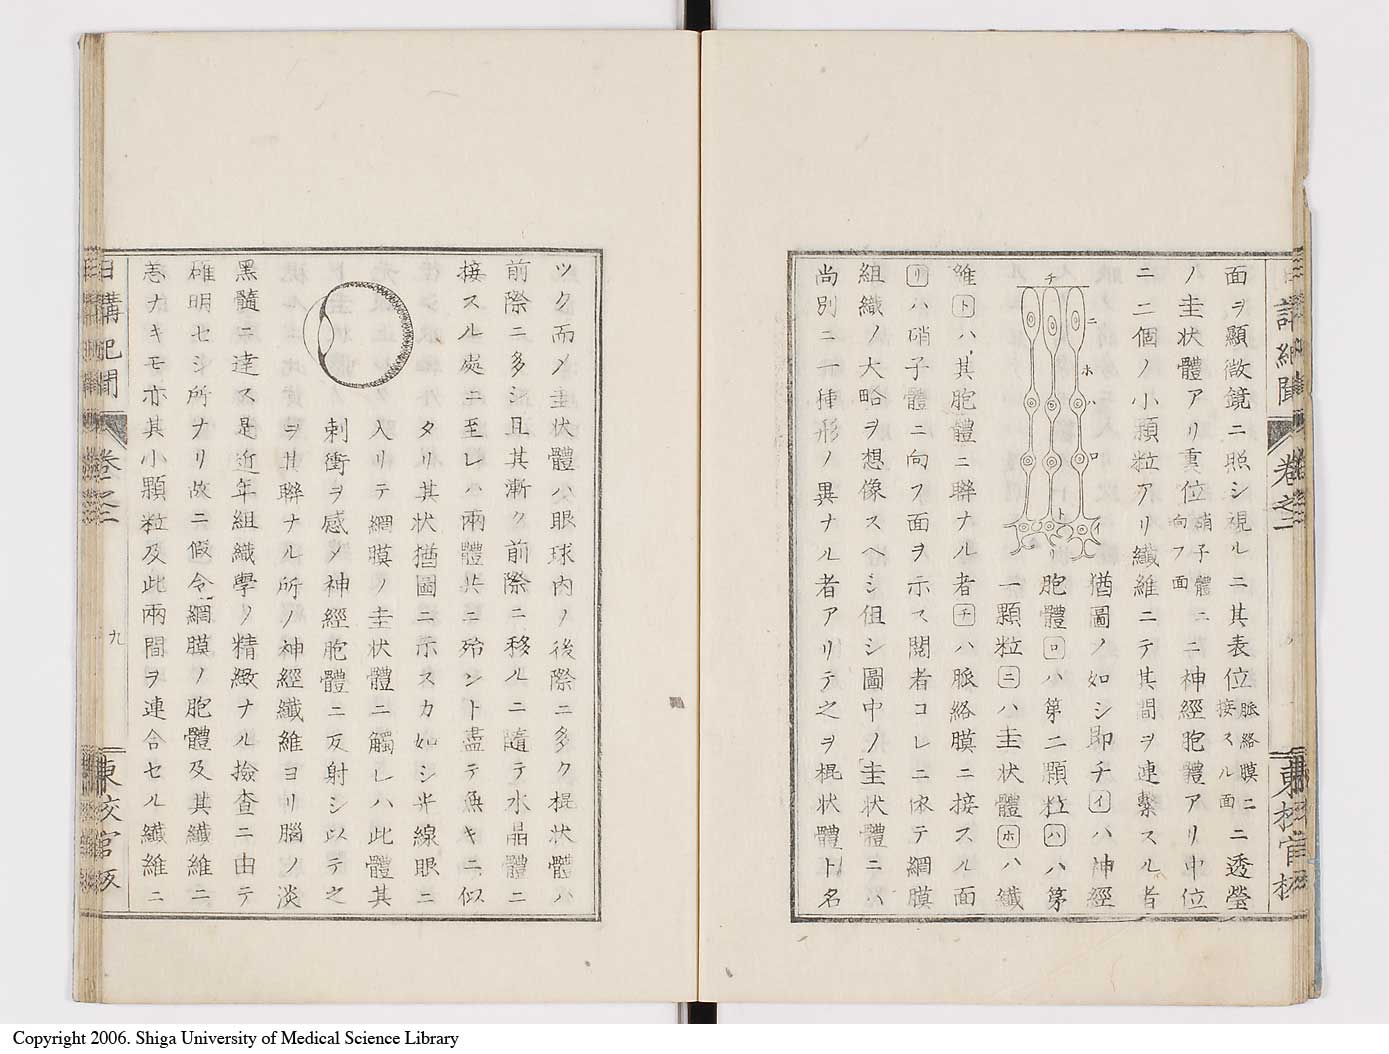 面ヲ顯微鏡ニ照シ視ルニ其表位脈絡膜ニ接スル面ニ透瑩
ノ圭状體アリ重位硝子體ニ向フ面ニ神經胞體アリ中位
ニ二個ノ小顆粒アリ纖維ニテ其間ヲ連繫スル者
猶圖ノ如シ即チイハ神經
胞體ロハ第二顆粒ハハ第
一顆粒ニハ圭状體ホハ纖
維トハ其胞體ニ聯ナル者チハ脈絡膜ニ接スル面
リハ硝子體ニ向フ面ヲ示ス閱者コレニ依テ網膜
組織ノ大略ヲ想像スヘシ但シ圖中ノ圭状體ニハ
尚別ニ一種形ノ異ナル者アリテ之ヲ棍状體ト名
チ
ニ
ホ
ハ
ロ
ト
イ
リ
日講紀聞
卷之二
東校官板
ツク而メ圭状體ハ眼球内ノ後際ニ多ク棍状體ハ
前際ニ多シ且其漸ク前際ニ移ルニ隨テ水晶體ニ
接スル處ニ至レハ兩體共ニ殆ント盡テ無キニ似
タリ其状猶圖ニ示スカ如シ光線眼ニ
入リテ網膜ノ圭状體ニ觸レハ此體其
刺衝ヲ感ノ神經胞體ニ反射シ以テ之
ヲ其聯ナル所ノ神經纖維ヨリ腦ノ淡
黑髓ニ達ス是近年組織學ノ精緻ナル撿查ニ由テ
確明セシ所ナリ故ニ假令網膜ノ胞體及其纖維ニ
恙ナキモ亦其小顆粒及此兩間ヲ連合セル纖維ニ
日講紀聞
卷之二
九
東校官板
Copyright 2006. Shiga University of Medical Science Library